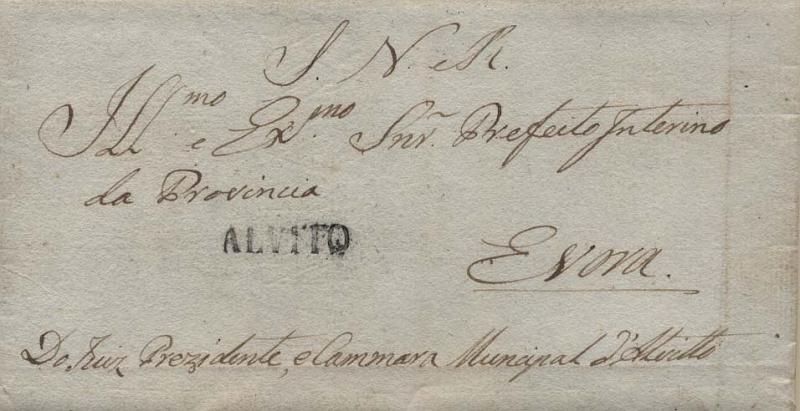 S. N. R.
Ill.mo e Ex.mo Snr. Prefeito Interino
da Provincia
ALVITO
Evora.
Do Juiz Prezidente, e Cammara Municipal d'Alvitto